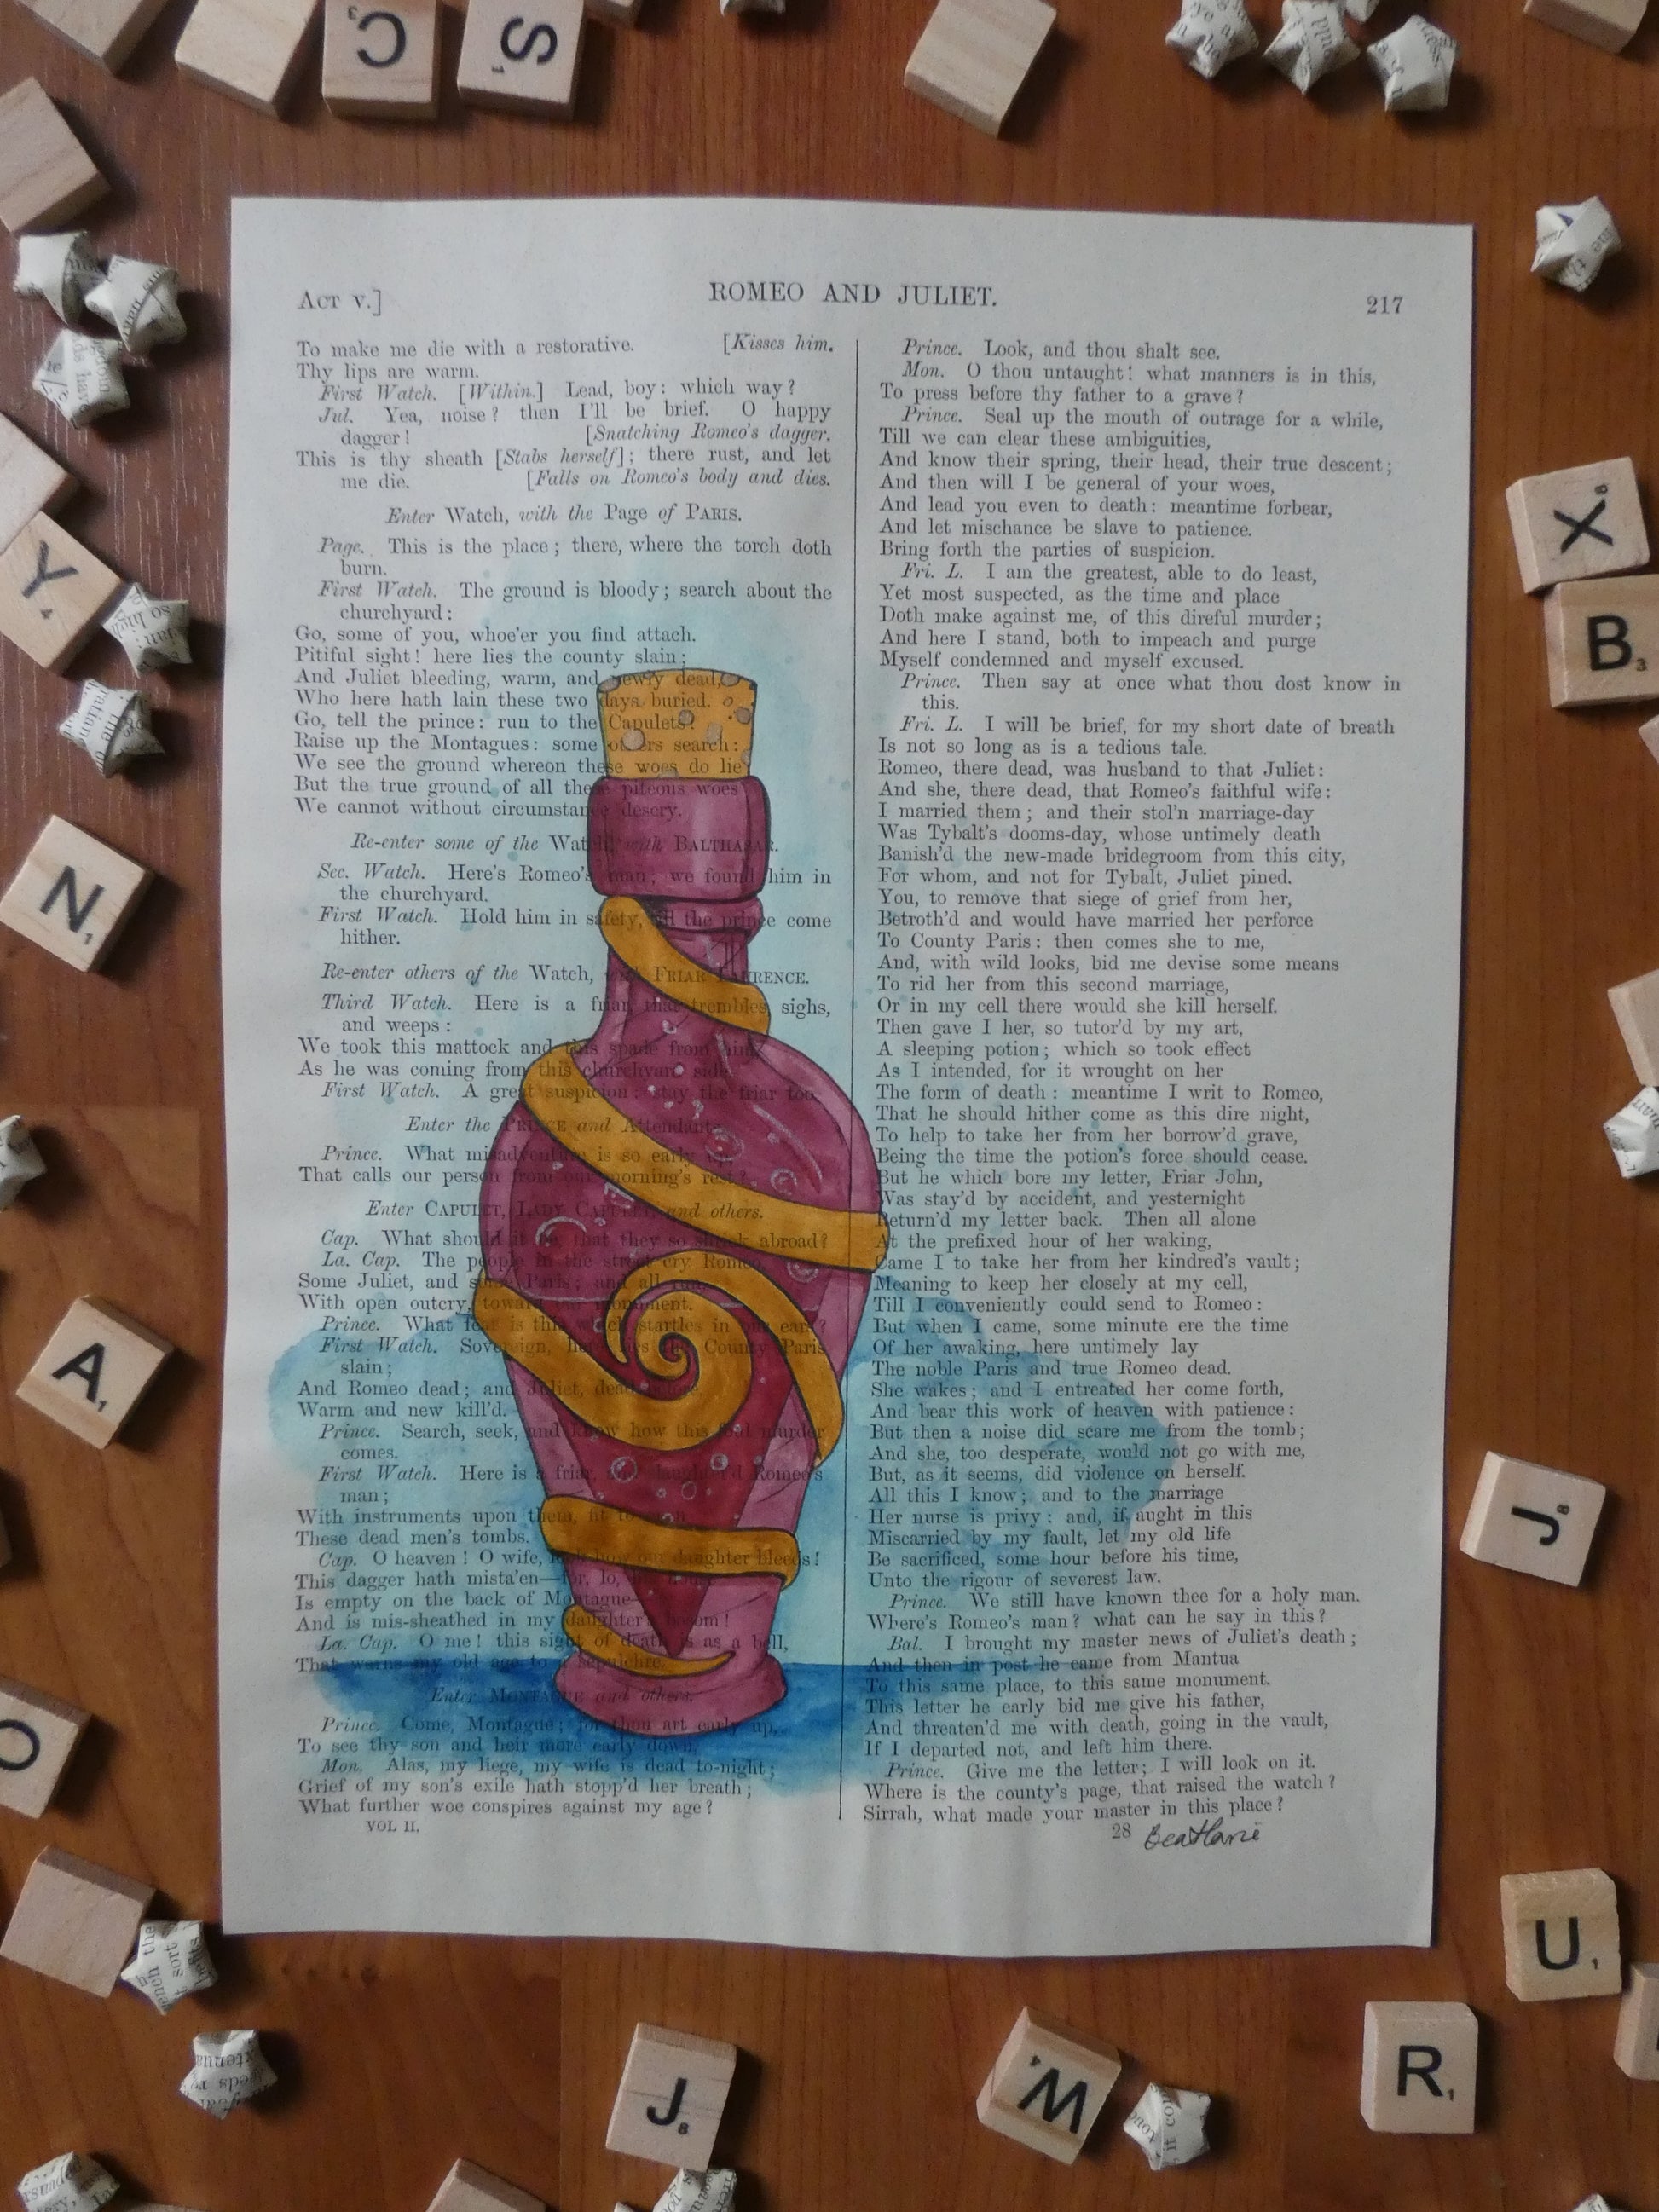 C3
S1
Act v.]
ROMEO AND JULIET.
217
To make me die with a restorative. [Kisses him.
Thy lips are warm.
First Watch. [Within.] Lead, boy: which way?
Jul. Yea, noise? then I'll be brief. O happy
dagger! [Snatching Romeo's dagger.
This is thy sheath [Stabs herself]; there rust, and let
me die. [Falls on Romeo's body and dies.
Enter Watch, with the Page of PARIS.
Page. This is the place; there, where the torch doth
burn.
First Watch. The ground is bloody; search about the
churchyard:
Go, some of you, whoe'er you find attach.
Pitiful sight! here lies the county slain;
And Juliet bleeding, warm, and newly dead,
Who here hath lain these two days buried.
Go, tell the prince: run to the Capulets:
Raise up the Montagues: some others search:
We see the ground whereon these woes do lie
But the true ground of all these piteous woes
We cannot without circumstance descry.
Re-enter some of the Watch, with BALTHASAR.
Sec. Watch. Here's Romeo's man; we found him in
the churchyard.
First Watch. Hold him in safety, till the prince come
hither.
Re-enter others of the Watch, with FRIAR LAURENCE.
Third Watch. Here is a friar, that trembles, sighs,
and weeps:
We took this mattock and this spade from him,
As he was coming from this churchyard side.
First Watch. A great suspicion: stay the friar too.
Enter the PRINCE and Attendants.
Prince. What misadventure is so early up,
That calls our person from our morning's rest?
Enter CAPULET, LADY CAPULET, and others.
Cap. What should it be, that they so shriek abroad?
La. Cap. The people in the street cry Romeo,
Some Juliet, and some Paris; and all run,
With open outcry, toward our monument.
Prince. What fear is this which startles in our ears?
First Watch. Sovereign, here lies the County Paris
slain;
And Romeo dead; and Juliet, dead before,
Warm and new kill'd.
Prince. Search, seek, and know how this foul murder
comes.
First Watch. Here is a friar, and slaughter'd Romeo's
man;
With instruments upon them, fit to open
These dead men's tombs.
Cap. O heaven! O wife, look how our daughter bleeds!
This dagger hath mista'en—for, lo, his house
Is empty on the back of Montague—
And is mis-sheathed in my daughter's bosom!
La. Cap. O me! this sight of death is as a bell,
That warns my old age to a sepulchre.
Enter MONTAGUE and others.
Prince. Come, Montague; for thou art early up,
To see thy son and heir more early down.
Mon. Alas, my liege, my wife is dead to-night;
Grief of my son's exile hath stopp'd her breath;
What further woe conspires against my age?
VOL II.
Prince. Look, and thou shalt see.
Mon. O thou untaught! what manners is in this,
To press before thy father to a grave?
Prince. Seal up the mouth of outrage for a while,
Till we can clear these ambiguities,
And know their spring, their head, their true descent;
And then will I be general of your woes,
And lead you even to death: meantime forbear,
And let mischance be slave to patience.
Bring forth the parties of suspicion.
Fri. L. I am the greatest, able to do least,
Yet most suspected, as the time and place
Doth make against me, of this direful murder;
And here I stand, both to impeach and purge
Myself condemned and myself excused.
Prince. Then say at once what thou dost know in
this.
Fri. L. I will be brief, for my short date of breath
Is not so long as is a tedious tale.
Romeo, there dead, was husband to that Juliet:
And she, there dead, that Romeo's faithful wife:
I married them; and their stol'n marriage-day
Was Tybalt's dooms-day, whose untimely death
Banish'd the new-made bridegroom from this city,
For whom, and not for Tybalt, Juliet pined.
You, to remove that siege of grief from her,
Betroth'd and would have married her perforce
To County Paris: then comes she to me,
And, with wild looks, bid me devise some means
To rid her from this second marriage,
Or in my cell there would she kill herself.
Then gave I her, so tutor'd by my art,
A sleeping potion; which so took effect
As I intended, for it wrought on her
The form of death: meantime I writ to Romeo,
That he should hither come as this dire night,
To help to take her from her borrow'd grave,
Being the time the potion's force should cease.
But he which bore my letter, Friar John,
Was stay'd by accident, and yesternight
Return'd my letter back. Then all alone
At the prefixed hour of her waking,
Came I to take her from her kindred's vault;
Meaning to keep her closely at my cell,
Till I conveniently could send to Romeo:
But when I came, some minute ere the time
Of her awaking, here untimely lay
The noble Paris and true Romeo dead.
She wakes; and I entreated her come forth,
And bear this work of heaven with patience:
But then a noise did scare me from the tomb;
And she, too desperate, would not go with me,
But, as it seems, did violence on herself.
All this I know; and to the marriage
Her nurse is privy: and, if aught in this
Miscarried by my fault, let my old life
Be sacrificed, some hour before his time,
Unto the rigour of severest law.
Prince. We still have known thee for a holy man.
Where's Romeo's man? what can he say in this?
Bal. I brought my master news of Juliet's death;
And then in post he came from Mantua
To this same place, to this same monument.
This letter he early bid me give his father,
And threaten'd me with death, going in the vault,
If I departed not, and left him there.
Prince. Give me the letter; I will look on it.
Where is the county's page, that raised the watch?
Sirrah, what made your master in this place?
28
Y4
N1
A1
O
X8
B3
J8
U1
R1
M4
J8